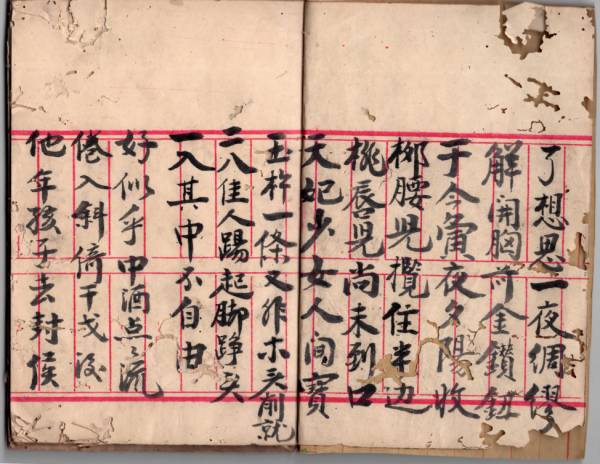 了想思一夜绸缪
解開胸前金鑽鈕
于今寅夜夕陽收
柳腰児攬住半边
桃唇児尚未到口
天妃少女人间寶
玉杵一條又非木头削就
二八佳人踢起脚踭头
一入其中不自由
好似手中酒点点流
倦入斜倚干戈後
他年孩子去封侯